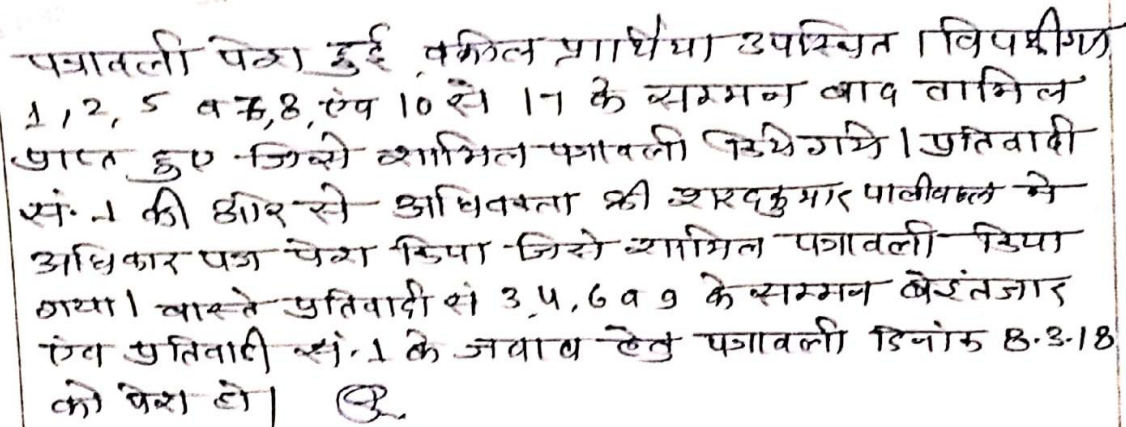 पत्रावली पेश हुई वकील प्रार्थीया उपस्थित । विपक्षीगण
1, 2, 5 व 7, 8, एंव 10 से 17 के सम्मन बाद तामिल
प्राप्त हुए जिसे शामिल पत्रावली किये गये । प्रतिवादी
सं. 1 की ओर से अधिवक्ता श्री शरदकुमार पालीवाल ने
अधिकार पत्र पेश किया जिसे शामिल पत्रावली किया
गया । वास्ते प्रतिवादी सं 3, 4, 6 व 9 के सम्मन बेइंतजार
एंव प्रतिवादी सं. 1 के जवाब हेतु पत्रावली दिनांक 8.3.18
को पेश हो |